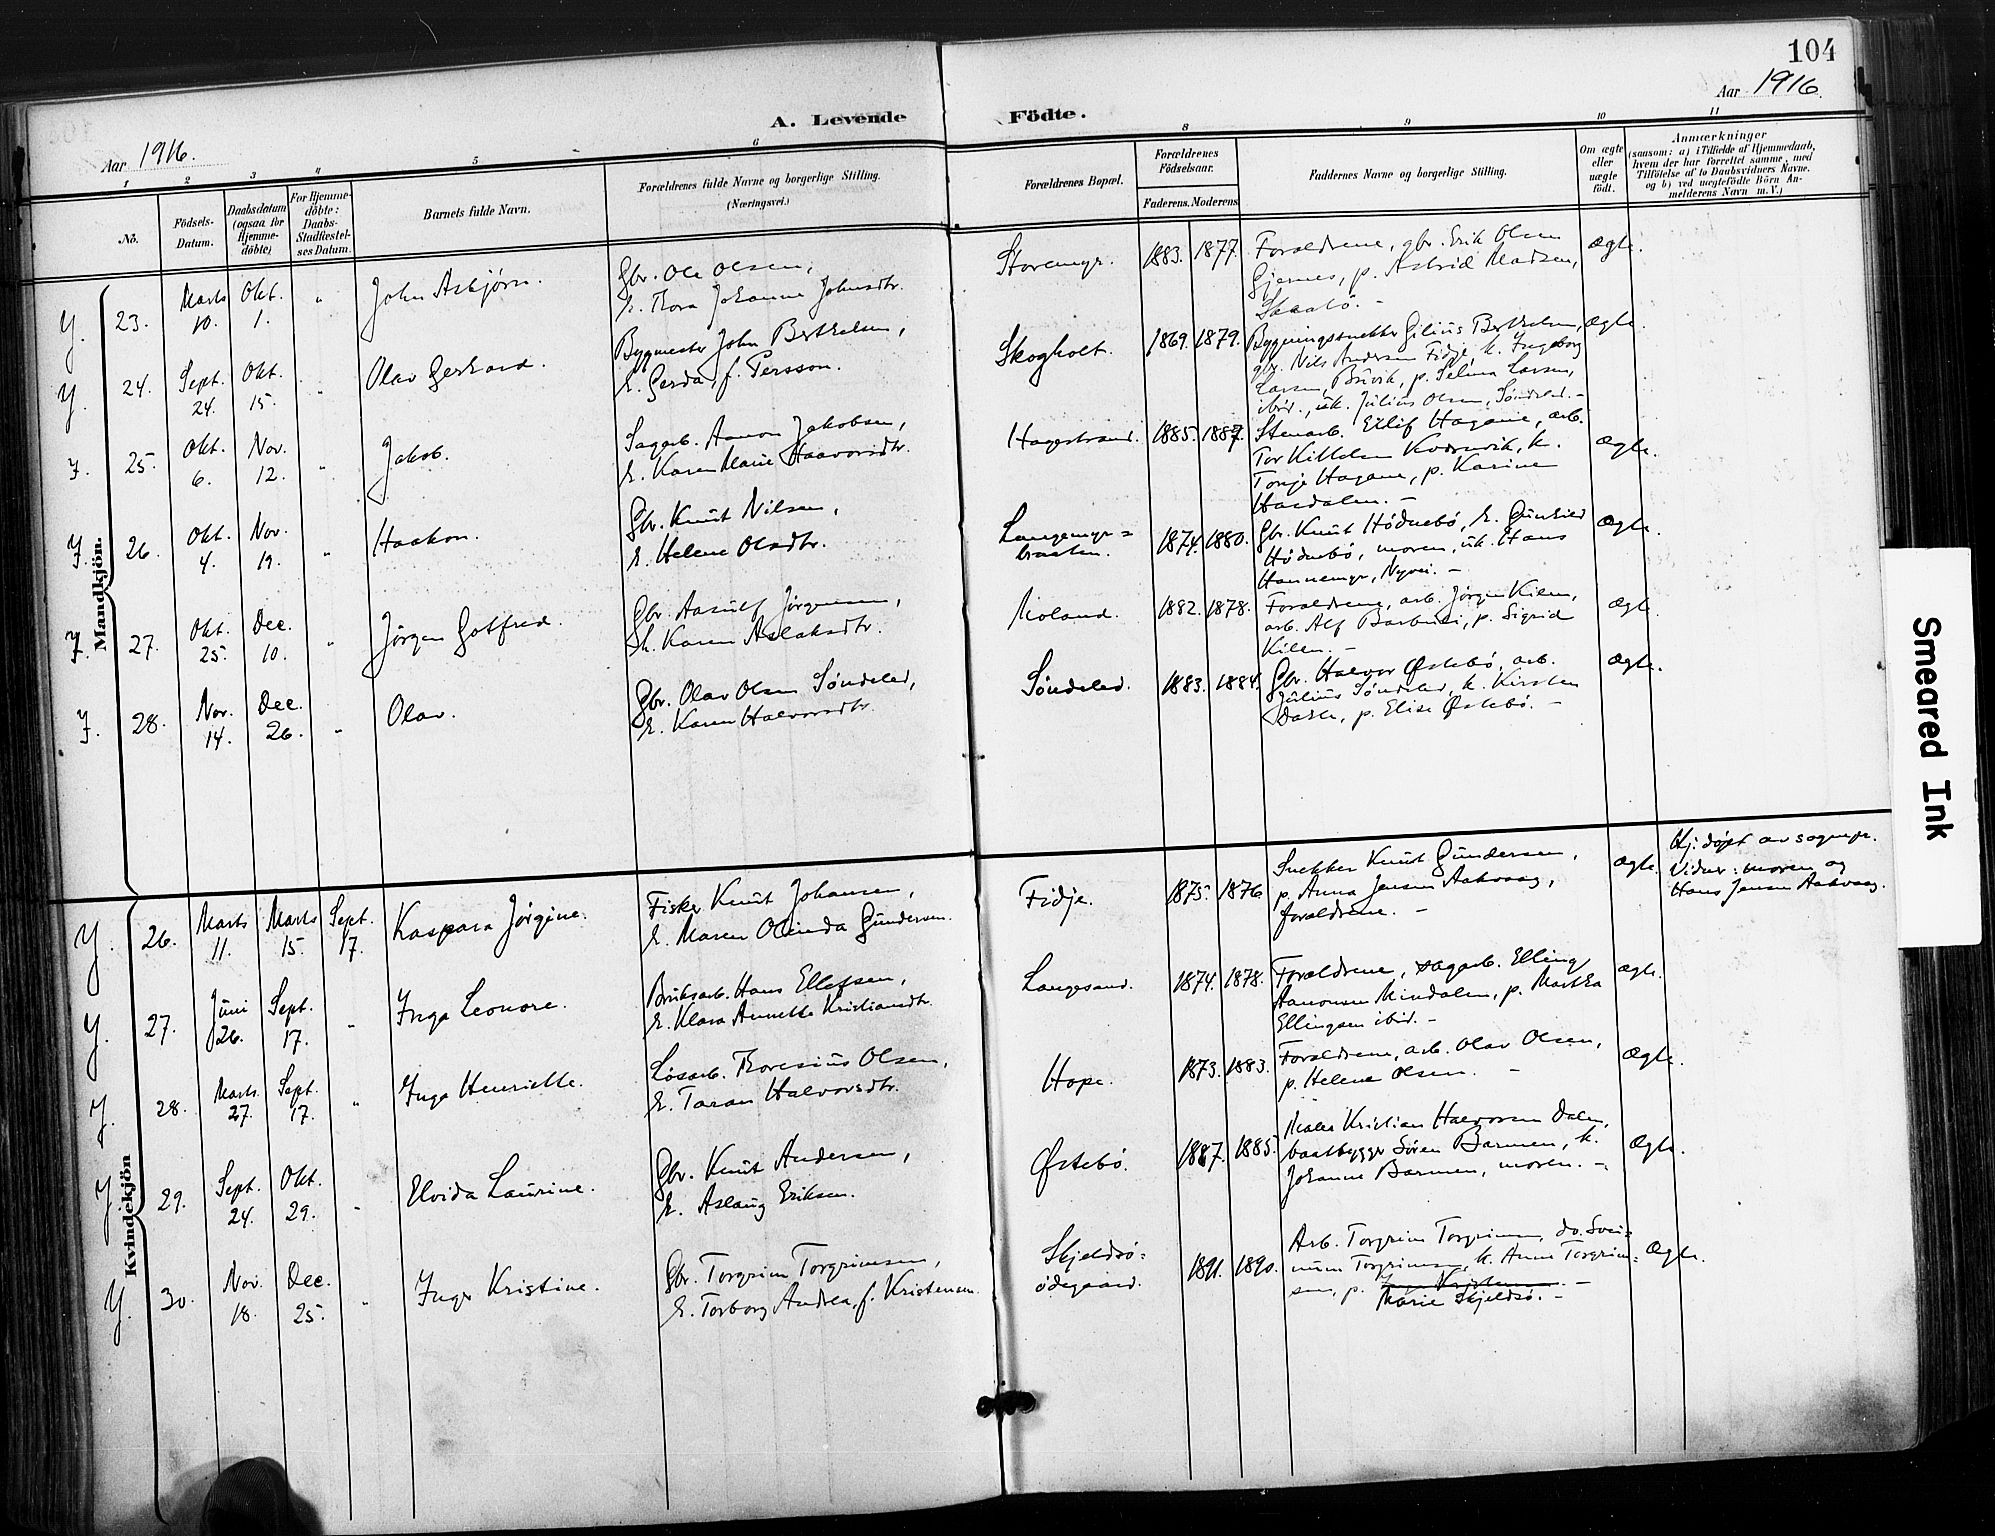 104
Aar 1916.
A. Levende Födte.
Aar 1916.
1 2 3 4 5 6 8 9 10 11
No.
Födsels-Datum.
Daabsdatum (ogsaa for Hjemme-döbte)
For Hjemme-döbte: Daabs-Stadfæstel-ses Datum.
Barnets fulde Navn.
Forældrenes fulde Navne og borgerlige Stilling.
(Næringsvei.)
Forældrenes Bopæl.
Forældrenes Födselsaar.
Faderens. Moderens.
Faddernes Navne og borgerlige Stilling.
Om ægte eller uægte födt.
Anmærkninger
(saasom: a) i Tilfælde af Hjemmedaab, hvem der har forrettet samme, med Tilföielse af to Daabsvidners Navne. og b) ved uægtefödte Börn An-melderens Navn m. V.)
Mandkjön.
Y. 23. Marts 10. Okt. 1. " John Asbjørn.
Gbr. Ole Olsen,
h. Thora Johanne Johnsdtr.
Storemyr. 1883. 1877.
Forældrene, gbr. Erik Olsen
Gjernes, p. Astrid Madsen,
Skaabö. -
Ægte.
Y. 24. Sept. 24. Okt. 15. " Olav Gerhard.
Bygmester John Berthelsen,
h. Gerda, f. Persson.
Skogholt. 1869. 1879.
Bygningssnekker Gilius Berthelsen,
gbr. Nils Andersen Fidje, k. Ingeborg
Larsen, Buvik, p. Selma Larsen,
ibid., uk. Julius Olsen, Søndeled. -
Ægte.
Y. 25. Okt. 6. Nov. 12. " Jakob.
Sagarb. Aanon Jakobsen,
h. Karen Marie Haavorsdtr.
Hagestrand. 1885. 1887.
Stenarb. Eilif Hagane, arb.
Tor Kittelsen Kvernvik, k.
Tonje Hagane, p. Karine
Haedalen. -
Ægte.
Y. 26. Okt. 4. Nov. 19. " Haakon.
Gbr. Knut Nilsen,
h. Helene Olsdtr.
Langemyr=
braaten. 1874. 1880.
Gbr. Knut Hødnebø, h. Gunhild
Hødnebø, moren, uk. Hans
Hannemyr, Nyvei. -
Ægte.
Y. 27. Okt. 25. Dec. 10. " Jørgen Gotfred.
Gbr. Aasulf Jørgensen,
h. Karen Aslaksdtr.
Moland. 1882. 1878.
Forældrene, arb. Jørgen Kilen,
arb. Alf Barbuei, p. Sigrid
Kilen. -
Ægte.
Y. 28. Nov. 14. Dec. 26. " Olav.
Gbr. Olav Olsen Søndeled,
h. Karen Halvorsdtr.
Søndeled. 1883. 1884.
Gbr. Halvor Østebø, arb.
Julius Søndeled, k. Kirsten
Dahle, p. Elise Østebø. -
Ægte.
Kvindekjön
Y. 26. Marts 11. Marts 15. Sept. 17. Kaspara Jørgine.
Fisker Knut Johansen,
h. Maren Olinda Gundersen.
Fidje. 1875. 1876
Snekker Knut Gundersen,
p. Anna Jensen Aakvaag,
forældrene. -
Ægte.
Hj. døpt av sognepr.
Vidner: moren og
Hans Jensen Aakvaag.
Y. 27. Juni 26. Sept. 17. " Inga Leonore.
Bruksarb. Hans Ellefsen,
h. Klara Annette Kristiansdtr.
Langesand. 1874. 1878.
Forældrene, sagarb. Elling
Aanonsen Mindalen, p. Martha
Ellingsen ibid. -
Ægte.
Y. 28. Marts 27. Sept. 17. " Inga Henriette.
Løsarb. Thoresius Olsen,
h. Taran Halvorsdtr.
Hope. 1873. 1883.
Forældrene, arb. Olav Olsen,
p. Helene Olsen. -
Ægte.
Y 29. Sept. 24. Okt. 29. " Elvida Laurine.
Gbr. Knut Andersen,
h. Aslaug Eriksen.
Østebö. 1887. 1885.
Maler Kristian Halvorsen Dalen,
baatbygger Søren Barmen, k.
Johanne Barmen, moren. -
Ægte.
Y. 30. Nov. 18. Dec. 25. " Inga Kristine.
Gbr. Torgrim Torgrimsen,
h. Torborg Andrea, f. Kristensen
Skjeldsö=
ödegaard. 1891. 1890.
Arb. Torgrim Torgrimsen, do. Svei=
num Torgrimsen, k. Anne Torgrim=
sen, p. Inga Kristensen. -
Marie Skjeldsö. -
Ægte.
Smeared Ink